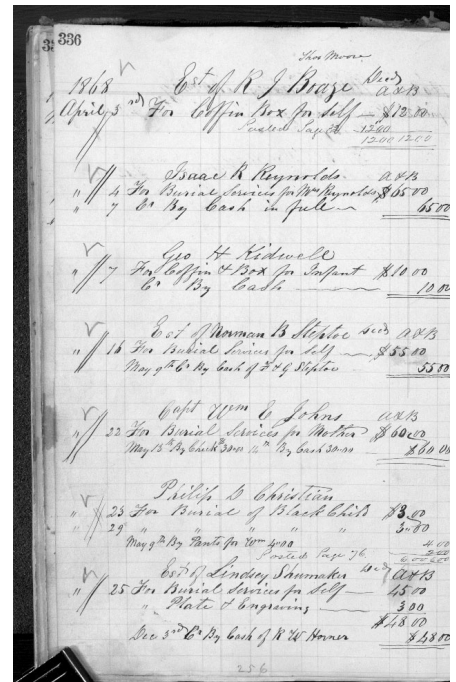 336
Thos Moore
1868 Est of R J Boaze Decd A & B
April 3rd For Coffin Box for Self — $12.00
Posted Page 1200
1200 1200
Isaac R Reynolds A & B
" 4 For Burial Services for Mrs Reynolds $65 00
" 7 Cr By Cash in full — 65 00
Geo H Kidwell
" 7 For Coffin & Box for Infant $10 00
Cr By Cash — 10 00
Est of Norman B Steptoe Decd A & B
" 16 For Burial Services for Self — $55 00
May 9th Cr By Cash of F & G Steptoe 55 00
Capt Wm E Johns A & B
" 22 For Burial Services for Mother $60 00
May 13th By Check 30 00 By Cash 30 00 — $60 00
Philip D Christian
" 23 For Burial of Black Child $3.00
" 29 " " " " " 3.00
May 9th By Pants for Wm 4.00 4.00
Posted Page 76 2 00
6 00 6 00
Est of Lindsay Shumaker Decd A & B
" 25 For Burial Services for Self — 45 00
" Plate & Engraving — 3 00
$48.00
Dec 3rd Cr By Cash of R W Horner $48 00
256